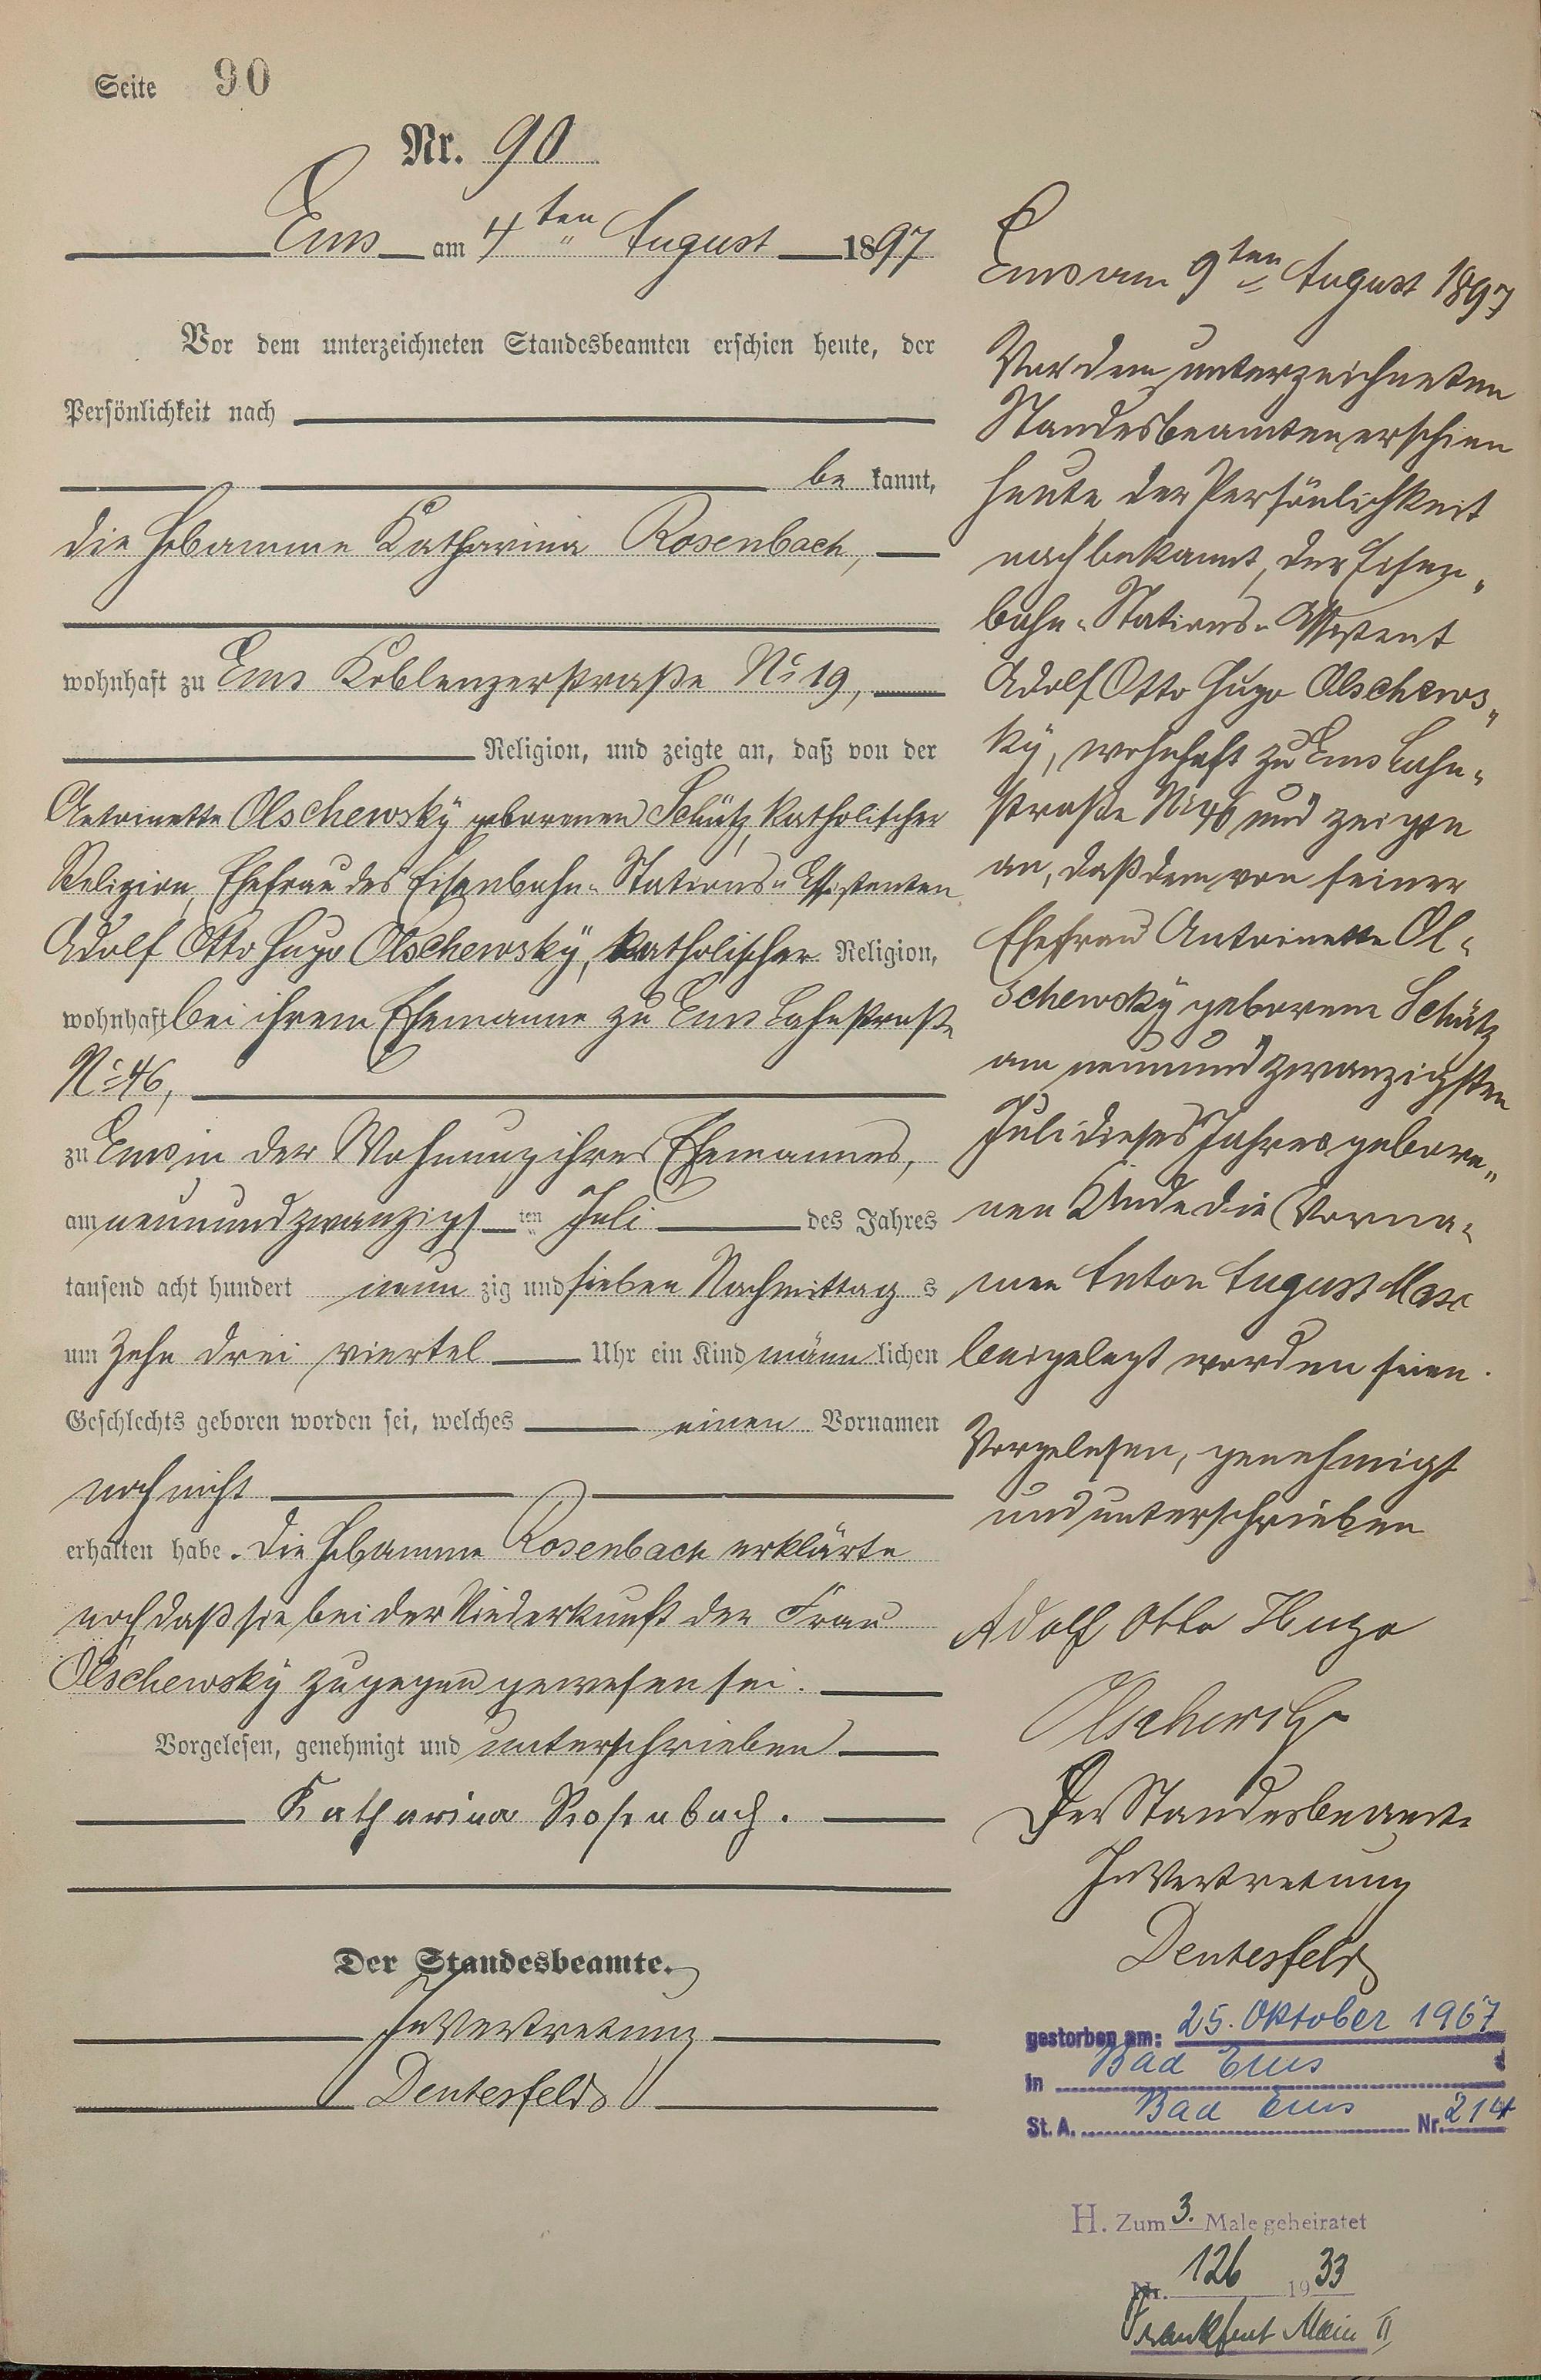 Seite 90
Nr. 90
Ems am 4ten August 1897
Vor dem unterzeichneten Standesbeamten erschien heute, der
Persönlichkeit nach
be kannt,
die Hebamme Katharina Rosenbach,
wohnhaft zu Ems Koblenzerstraße No 19,
Religion, und zeigte an, daß von der
Antoinette Olschewsky geborenen Schütz, katholischer
Religion, Ehefrau des Eisenbahn-Stations-Assistenten
Adolf Otto Hugo Olschewsky, katholischer Religion,
wohnhaft bei ihrem Ehemanne zu Ems Lahnstraße
No 46,
zu Ems in der Wohnung ihres Ehemannes,
am neunundzwanzigsten Juli des Jahres
tausend acht hundert neun zig und sieben Nachmittag s
um zehn drei viertel Uhr ein Kind männlichen
Geschlechts geboren worden sei, welches einen Vornamen
noch nicht
erhalten habe. Die Hebamme Rosenbach erklärte
noch daß sie bei der Niederkunft der Frau
Olschewsky zugegen gewesen sei.
Vorgelesen, genehmigt und unterschrieben
Katharina Rosenbach.
Der Standesbeamte.
In Vertretung
Dentesfeld
Ems am 9ten August 1897
Vor dem unterzeichneten
Standesbeamten erschien
heute der Persönlichkeit
nach bekannt, der Eisen-
bahn-Stations-Assistent
Adolf Otto Hugo Olschews-
ky, wohnhaft zu Ems Lahn-
straße No 46 und zeigte
an, daß dem von seiner
Ehefrau Antoinette Ol-
schewsky geborene Schütz
am neunundzwanzigsten
Juli dieses Jahres gebore-
nen Kinde die Vorna-
men Anton August Max
beigelegt worden seien.
Vorgelesen, genehmigt
und unterschrieben
Adolf Otto Hugo
Olschewsky
Der Standesbeamte
In Vertretung
Dentesfeld
gestorben am: 25. Oktober 1967
in Bad Ems
St. A. Bad Ems Nr. 214
H. Zum 3. Male geheiratet
Nr. 126 1933
Frankfurt Main II